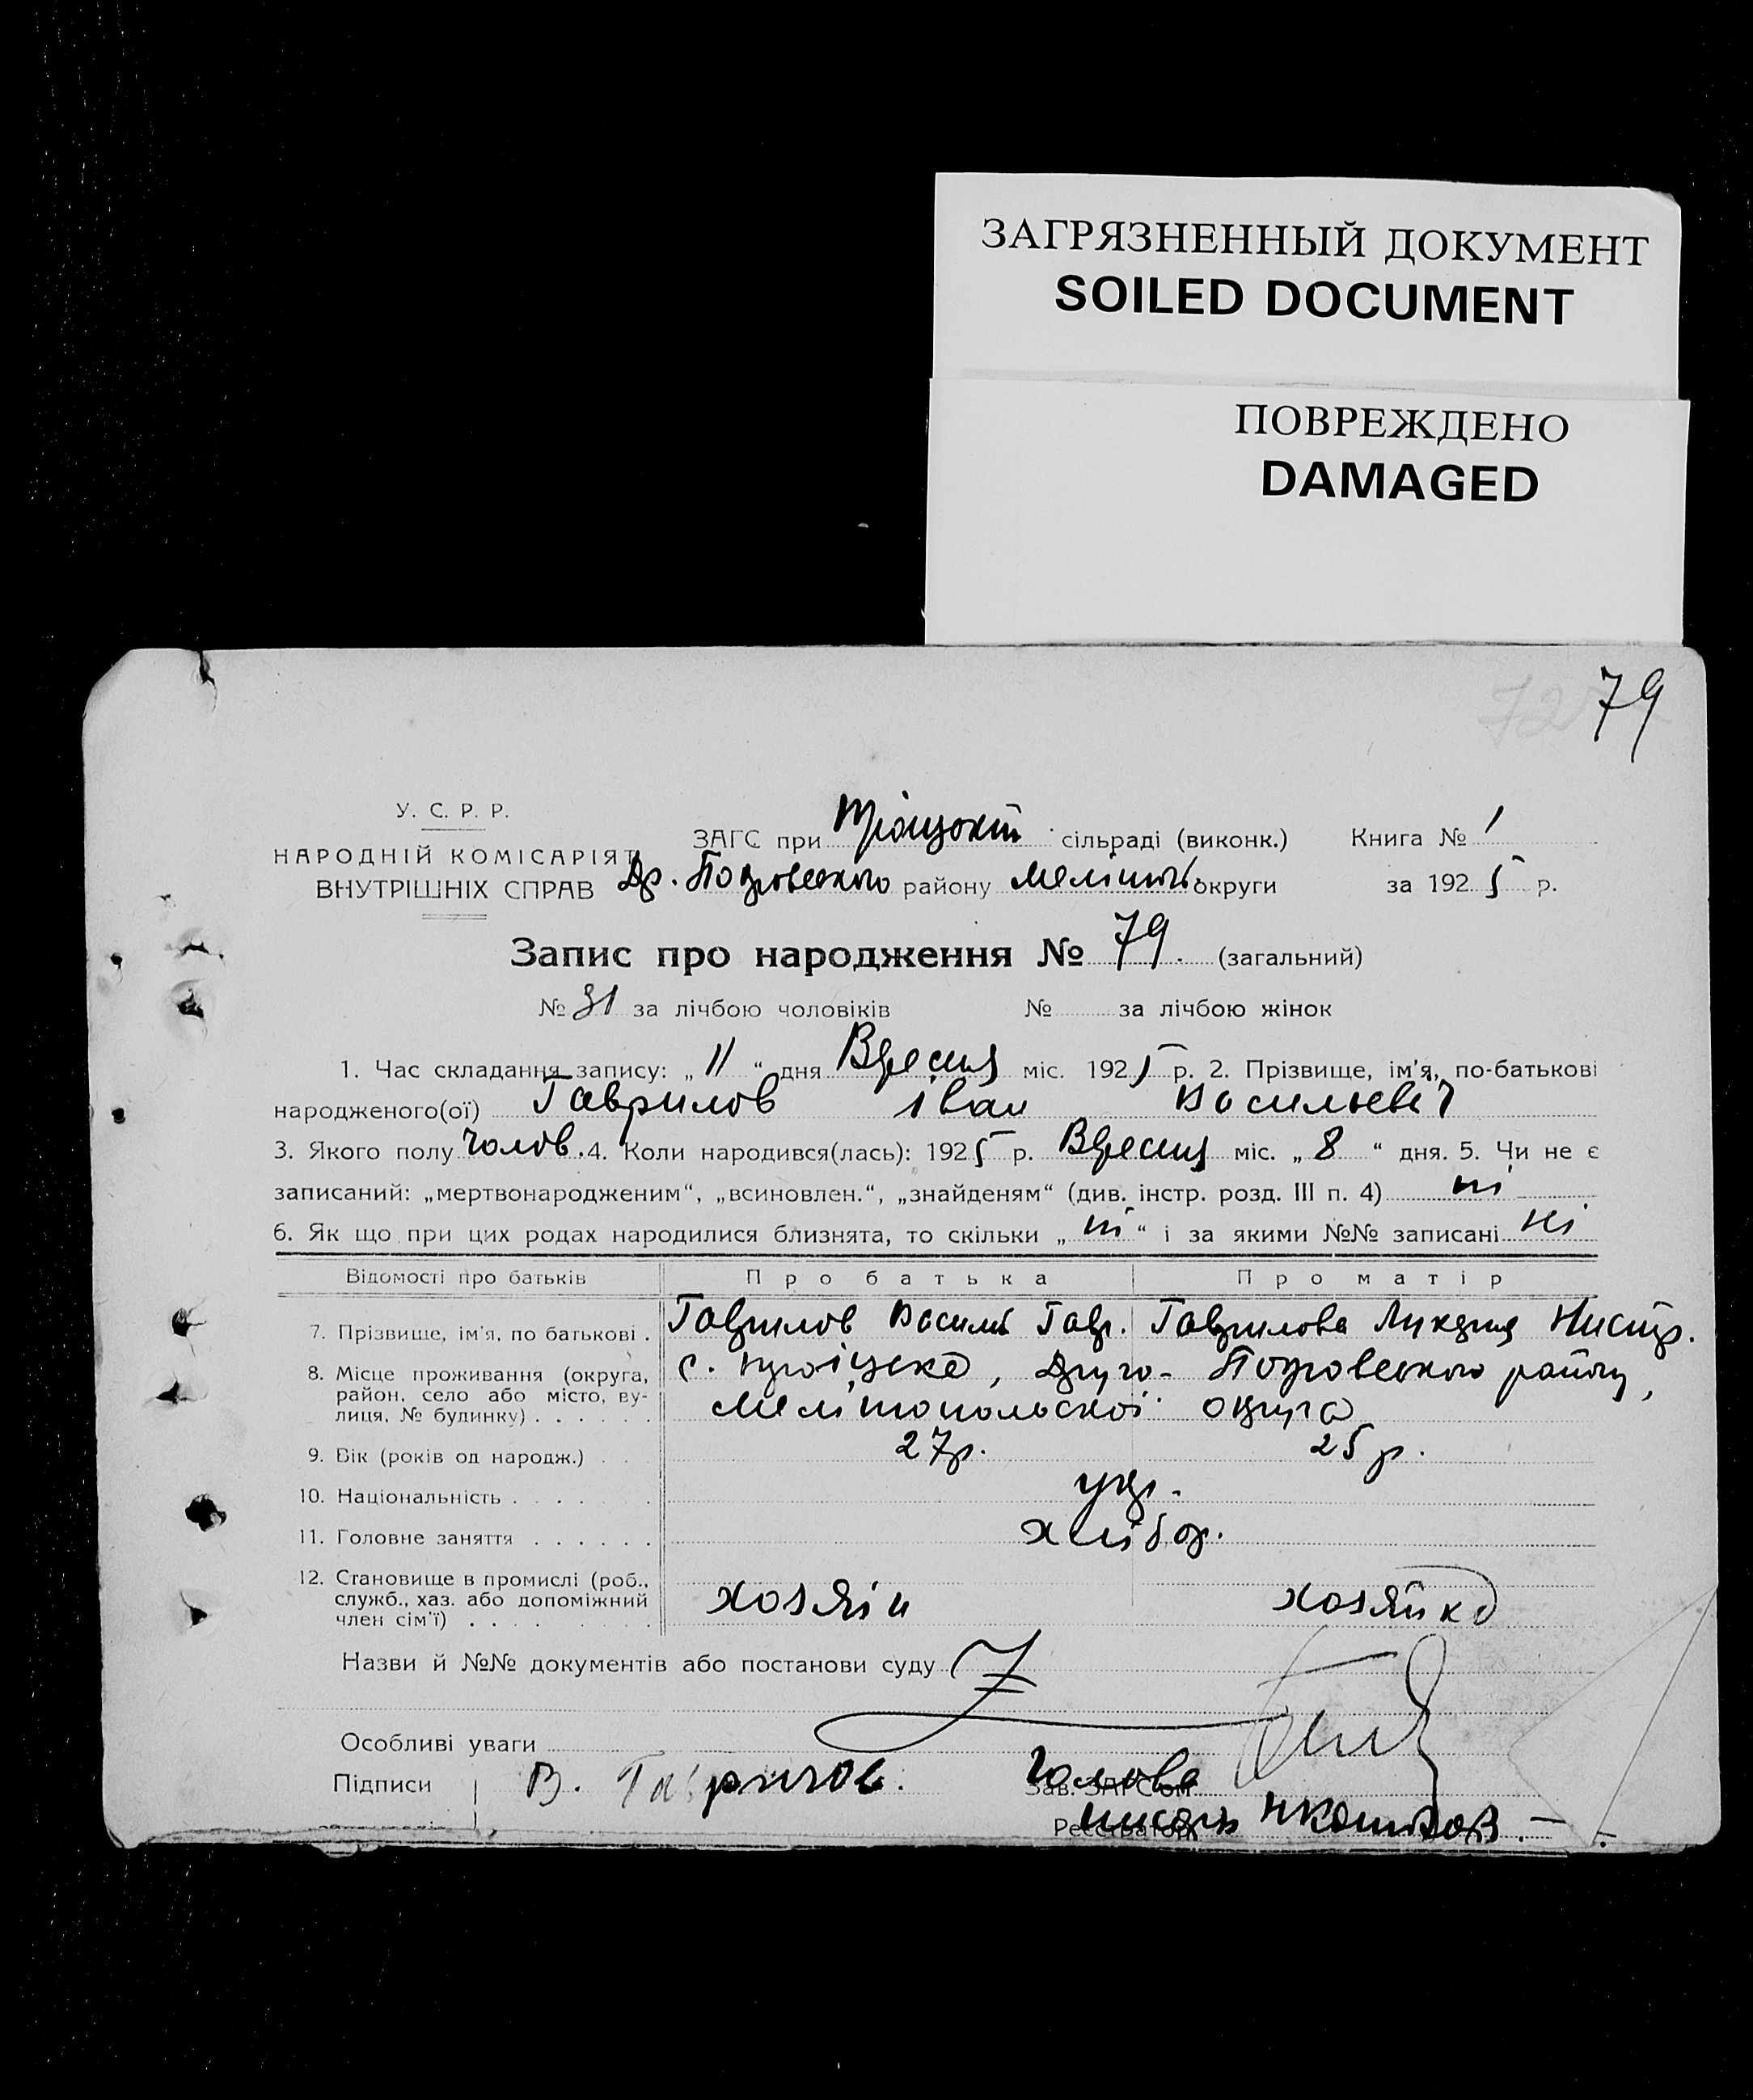 ЗАГРЯЗНЕННЫЙ ДОКУМЕНТ
SOILED DOCUMENT
ПОВРЕЖДЕНО
DAMAGED
79
У. С. Р. Р.
НАРОДНІЙ КОМІСАРІЯТ
ВНУТРІШНІХ СПРАВ
ЗАГС при сільраді (виконк.) Книга № 1
Др. Покровского району Меліноп. округи за 1925 р.
Запис про народження № 79. (загальний)
№ 31 за лічбою чоловіків № за лічбою жінок
1. Час складання запису: „ 11 “ дня Вересня міс. 1925 р. 2. Прізвище, ім'я, по-батькові
народженого(ої) Гаврилов Іван Васильевіч
3. Якого полу чолов. 4. Коли народився(лась): 1925 р. Вересня міс. „ 8 “ дня. 5. Чи не є
записаний: „мертвонародженим“, „всиновлен.“, „знайденям“ (див. інстр. розд. III п. 4) ні
6. Як що при цих родах народилися близнята, то скільки „ ні “ і за якими №№ записані ні
Відомості про батьків Про батька Про матір
7. Прізвище, ім'я, по батькові . Гаврилов Василь Гавр. Гаврилова Лукерия
8. Місце проживання (округа, район, село або місто, вулиця, № будинку) . . . . . . с. Троіцьке, Друго-Покровского району,
Мелітопольскоі округа
9. Вік (років од народж.) . . 27р. 25р.
10. Національність . . . . . . укр.
11. Головне заняття . . . . . . хлібор.
12. Становище в промислі (роб., служб., хаз. або допоміжний член сім'ї) . . . . хозяін хозяйка
Назви й №№ документів або постанови суду
Особливі уваги
Підписи В. Гаврилов. Голова
Зав. ЗАГС'ом
Реєстратор